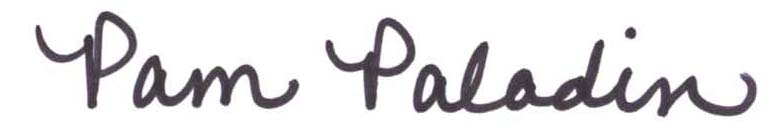 Pam Paladin